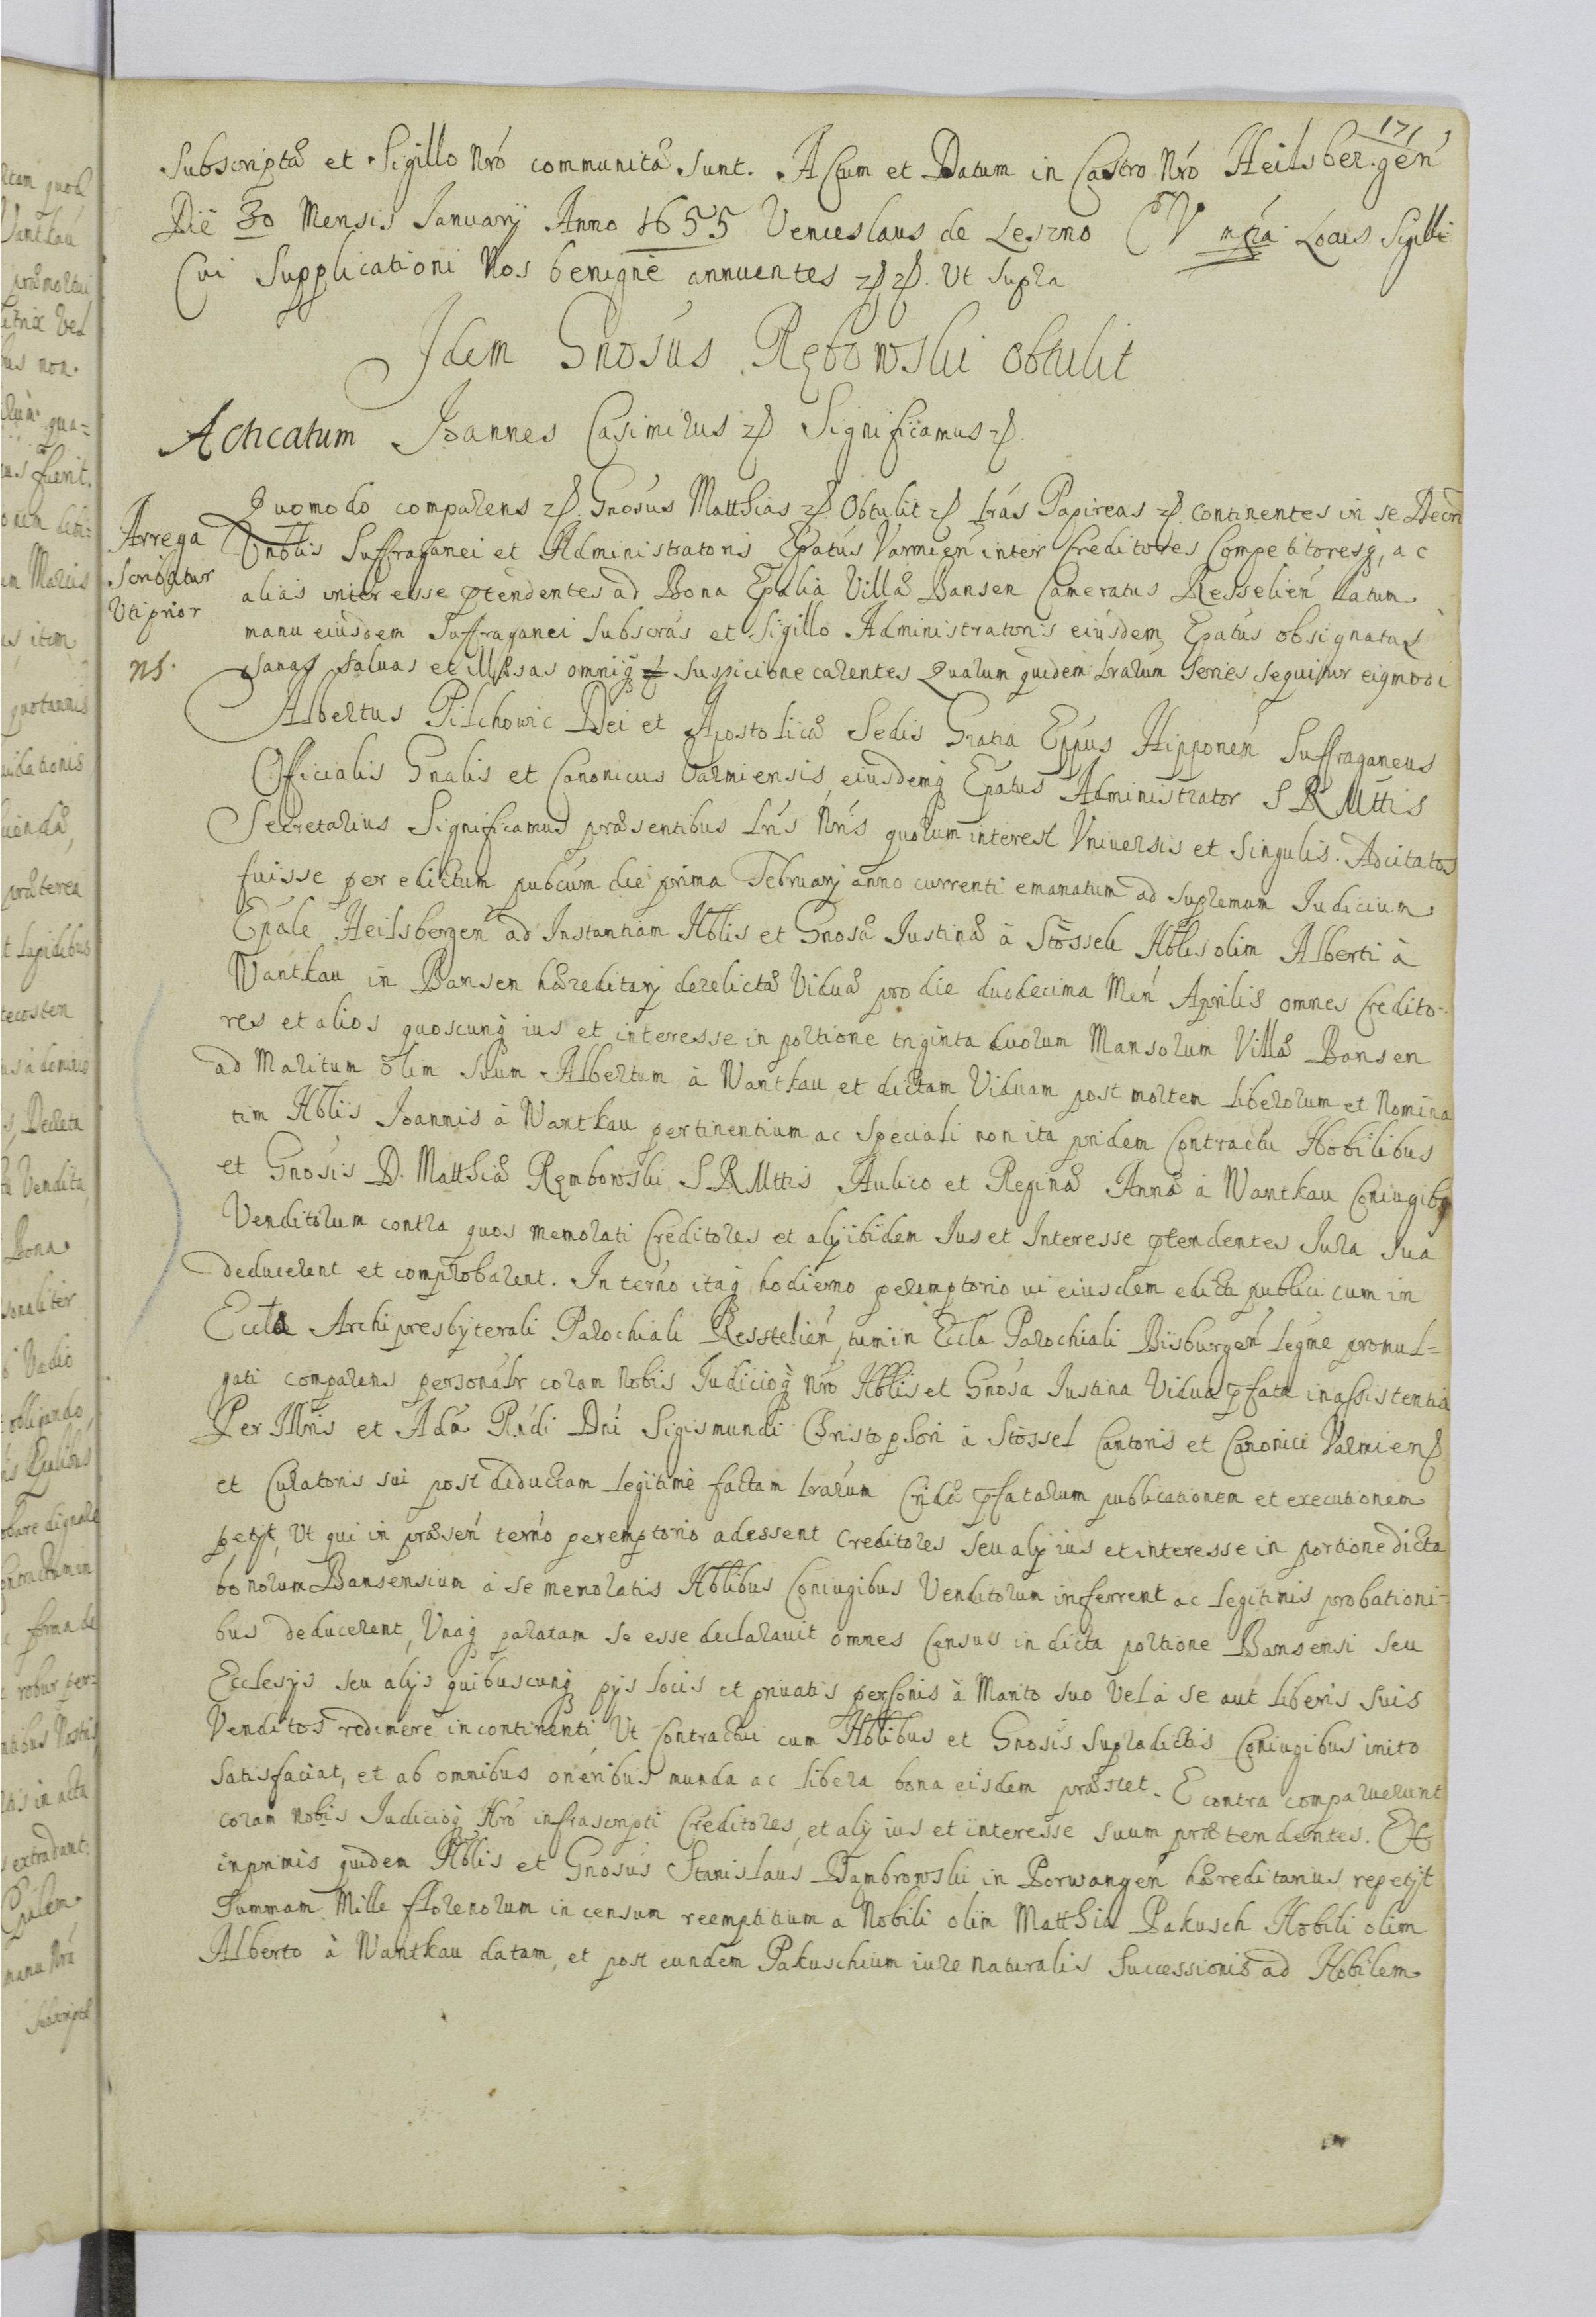 171
Subscriptæ et Sigillo Nró communitæ sunt. Actum et Datum in Castro Nró Heilsbergén
Die 30 Mensis Januarij Anno 1655 Venceslaus de Leszno EV mpra Locus Sigilli
Cui Supplicationi Nos benigne annuentes etc etc. Ut supra
Idem Gnosus Rębowski obtulit
Acticatum Joannes Casimirus etc Significamus etc.
Quomodo comparens etc. Gnosus Matthias etc. Obtulit etc lrás Papireas etc. continentes in se Decrm
Suffraganei et Administratoris Epatus Varmien inter Creditores Competitoresq, ac
alias interesse ptendentes ad Bona Epalia Villæ Bansen Cameratus Resselien Latum
manu eiusdem Suffraganei Subscrás et Sigillo Administratoris eiusdem Epatus obsignatas
Arrega
Scribatur
Uti prior
NS.
sanas salvas et illæsas omniq suspicione carentes Quarum quidem lrarum Series sequitur eigmodi
Albertus Pilchowic Dei et Apostolicæ Sedis Gratia Eppus Hipponen Suffraganeus
Officialis Gnalis et Canonicus Varmiensis, eiusdemq Epatus Administrator S R Mttis
Secretarius Significamus præsentibus lrís Nrís quorum interest Universis et Singulis. Adcitatos
fuisse per edictum pubcum die prima Februarij anno currenti emanatum ad supremum Iudicium
Epale Heilsbergen ad Instantiam Nblis et Gnosæ Iustinæ à Stössel Nblis olim Alberti à
Wantkau in Bansen hæreditarij derelictæ Viduæ pro die duodecima Men Aprilis omnes Credito-
res et alios quoscunq ius et interesse in portione triginta duorum Mansorum Villæ Bansen
ad Maritum olim suum Albertum à Wantkau et dictam Viduam post mortem liberorum et Nomina
tim Nblis Joannis à Wantkau pertinentium ac speciali non ita pridem Contractu Nobilibus
et Gnosis D. Matthiæ Rembowski S R Mttis Aulico et Reginæ Annæ à Wantkau Coniugibq
Venditorum contra quos memorati Creditores et alij ibidem Ius et Interesse ptendentes Iura sua
deducerent et comprobarent. In terno itaq hodierno peremptorio vi eiusdem edicti publici cum in
Eccla Archipresbyterali Parochiali Resselien, tum in Eccla Parochiali Bisburgen legme promul-
gati comparens personalr coram Nobis Judicioq Nro Nblis et Gnosa Iustina Vidua pfata in assistentia
Per Illris et Adm Rndi Dni Sigismundi Christophori à Stössel Cantoris et Canonici Varmien
et Curatoris sui post deductam legitime factam lrarum Cridæ pfatarum publicationem et executionem
petijt, Ut qui in præsen terno peremptorio adessent Creditores seu alij ius et interesse in portione dicta
bonorum Bansensium à se memoratis Nblibus Coniugibus Venditorum inferrent ac legitimis probationi-
bus deducerent, Unaq paratam se esse declaravit omnes Census in dicta portione Bansensi seu
Ecclesijs seu alijs quibuscunq pijs locis et privatis personis à Marito suo Vel à se aut liberis suis
Venditos redimere in continenti Ut Contractui cum Nblibus et Gnosis Supradictis Coniugibus inito
satisfaciat, et ab omnibus oneribus munda ac libera bona eisdem præstet. E contra comparuerunt
coram nobis Judicioq Nro infrascripti Creditores, et alij ius et interesse suum prætendentes. Et
inprimis quidem Nblis et Gnosus Stanislaus Dąmbrowski in Porwangen hæreditarius repetijt
Summam Mille florenorum in censum reemptitium a Nobili olim Matthia Pakusch Nobili olim
Alberto à Wantkau datam, et post eundem Pakuschium iure naturalis Successionis ad Nobilem